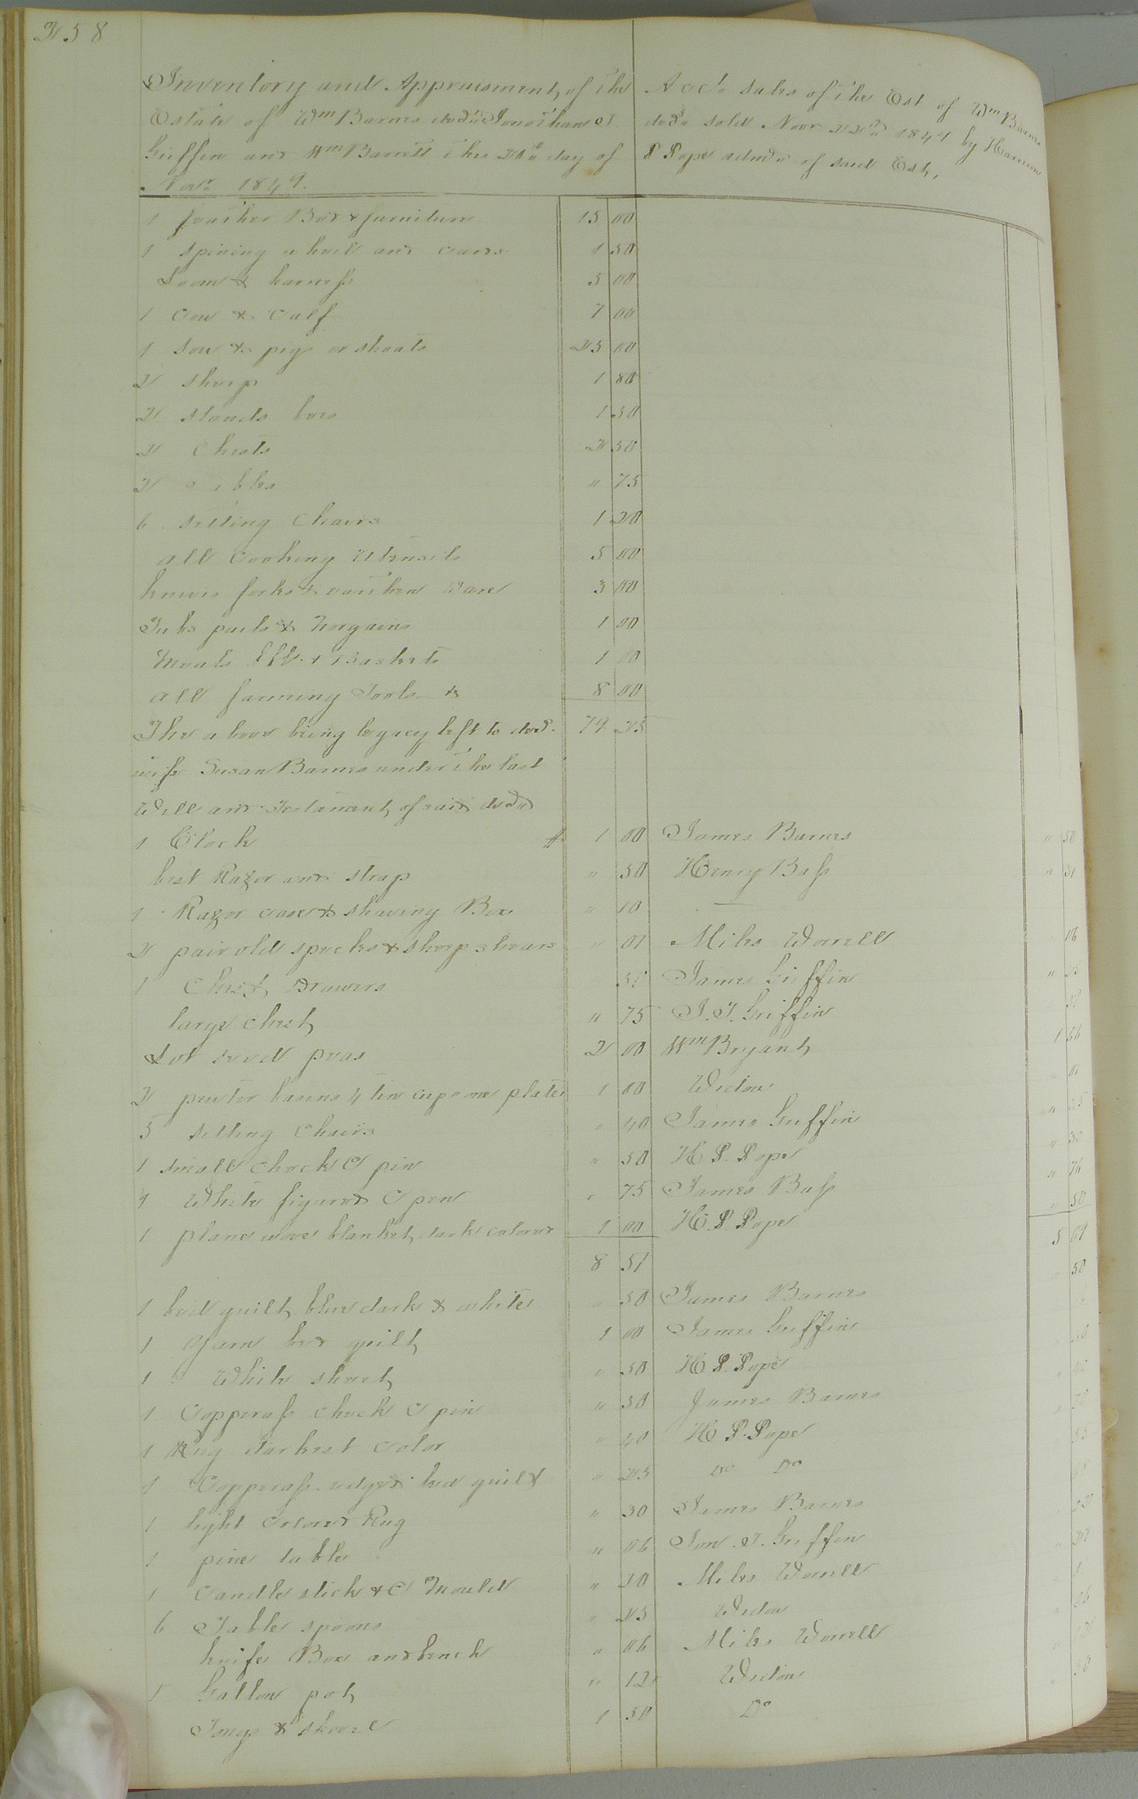 258
Inventory and Appraisment of the
Estate of Wm Barnes decd Jonathan T.
Griffin and Wm Barrett the day of
Novr 1849.
Acct. Sales of the Est. of Wm Barnes
decd sold Novr 1849 by Harrison
P Pope admr of said Est,
1 feather Bed & furniture 15 00
1 spining wheel and cards 1 50
Loom & harness 5 00
1 Cow & Calf 7 00
1 Sow & pigs or shoats 25 00
2 sheep 1 80
2 stands bees 1 50
2 Chests 2 50
2 tables " 75
6 setting Chairs 1 20
all cooking utensils 5 00
knives forks & earthen ware 3 00
Tubs pails & 1 00
Meal & Baskets 1 00
all farming Tools & 8 00
The above being legacy left to decd. 79 25
wife Susan Barnes under the last
Will and Testament of said decd
1 Clock $ 1 00 James Barnes " 50
best Razor and strap " 50 Henry Bass "
1 Razor case & shaving Box " 10 —
2 pair old specks & sheep shears " 01 Miles Worrell 06
1 Chest, Drawers James Griffin "
large chest, " 75 J. T. Griffin
Lot seed peas 2 00 Wm Bryant, 1
2 pewter basens 4 tin cups one plate 1 00 Widow
5 setting Chairs " 40 James Griffin " 25
1 small check C pin " 50 H P. Pope "
1 White figured C pen " 75 James Bass "
1 plane wove blanket, dark colored 1 00 H. P. Pope " 50
8 51 5
1 bed quilt, blue dark & white " 50 James Barnes 50
1 yarn bed quilt 1 00 James Griffin
1 White sheet, " 50 H P. Pope
1 Copperass check C pin " 50 James Barnes
1 Rug darkest color " 40 H P. Pope
1 Copperass edged bed quilt " 25 Do Do
1 light colored Rug " 30 James Barnes
1 pine table " 06 Jon. T. Griffin
1 Candle stick & C Mould " 10 Miles Worrell
6 Table spoons " 25 Widow
knife Box and bench " 06 Miles Worrell
1 Gallon pot, " 12 Widow
Tongs & shovel 1 50 Do